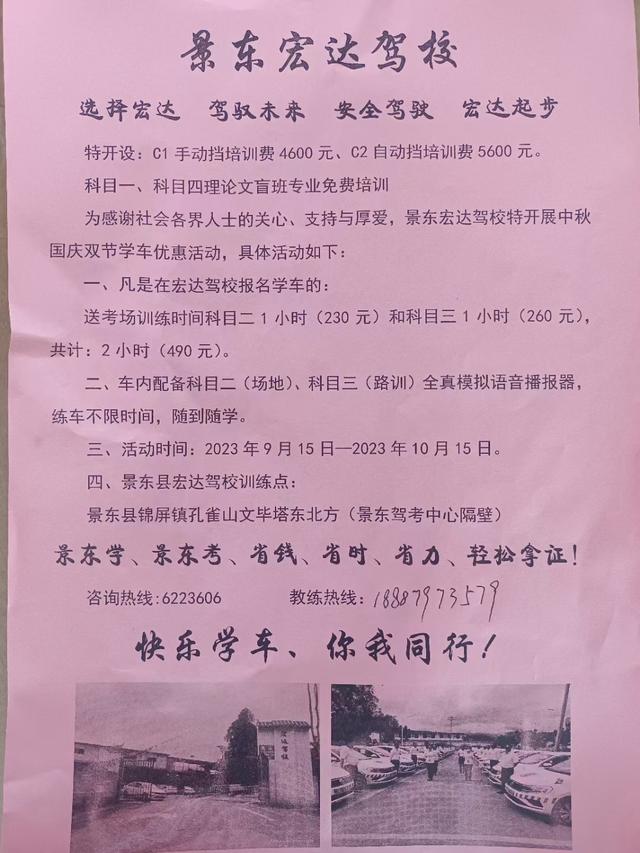 景东宏达驾校
选择宏达 驾驭未来 安全驾驶 宏达起步
特开设：C1 手动挡培训费 4600 元、C2 自动挡培训费 5600 元。
科目一、科目四理论文盲班专业免费培训
为感谢社会各界人士的关心、支持与厚爱，景东宏达驾校特开展中秋
国庆双节学车优惠活动，具体活动如下：
一、凡是在宏达驾校报名学车的：
送考场训练时间科目二 1 小时（230 元）和科目三 1 小时（260 元），
共计：2 小时（490 元）。
二、车内配备科目二（场地）、科目三（路训）全真模拟语音播报器，
练车不限时间，随到随学。
三、活动时间：2023 年 9 月 15 日—2023 年 10 月 15 日。
四、景东县宏达驾校训练点：
景东县锦屏镇孔雀山文毕塔东北方（景东驾考中心隔壁）
景东学、景东考、省钱、省时、省力、轻松拿证！
咨询热线:6223606 教练热线：18887973579
快乐学车、你我同行！
宏达驾校